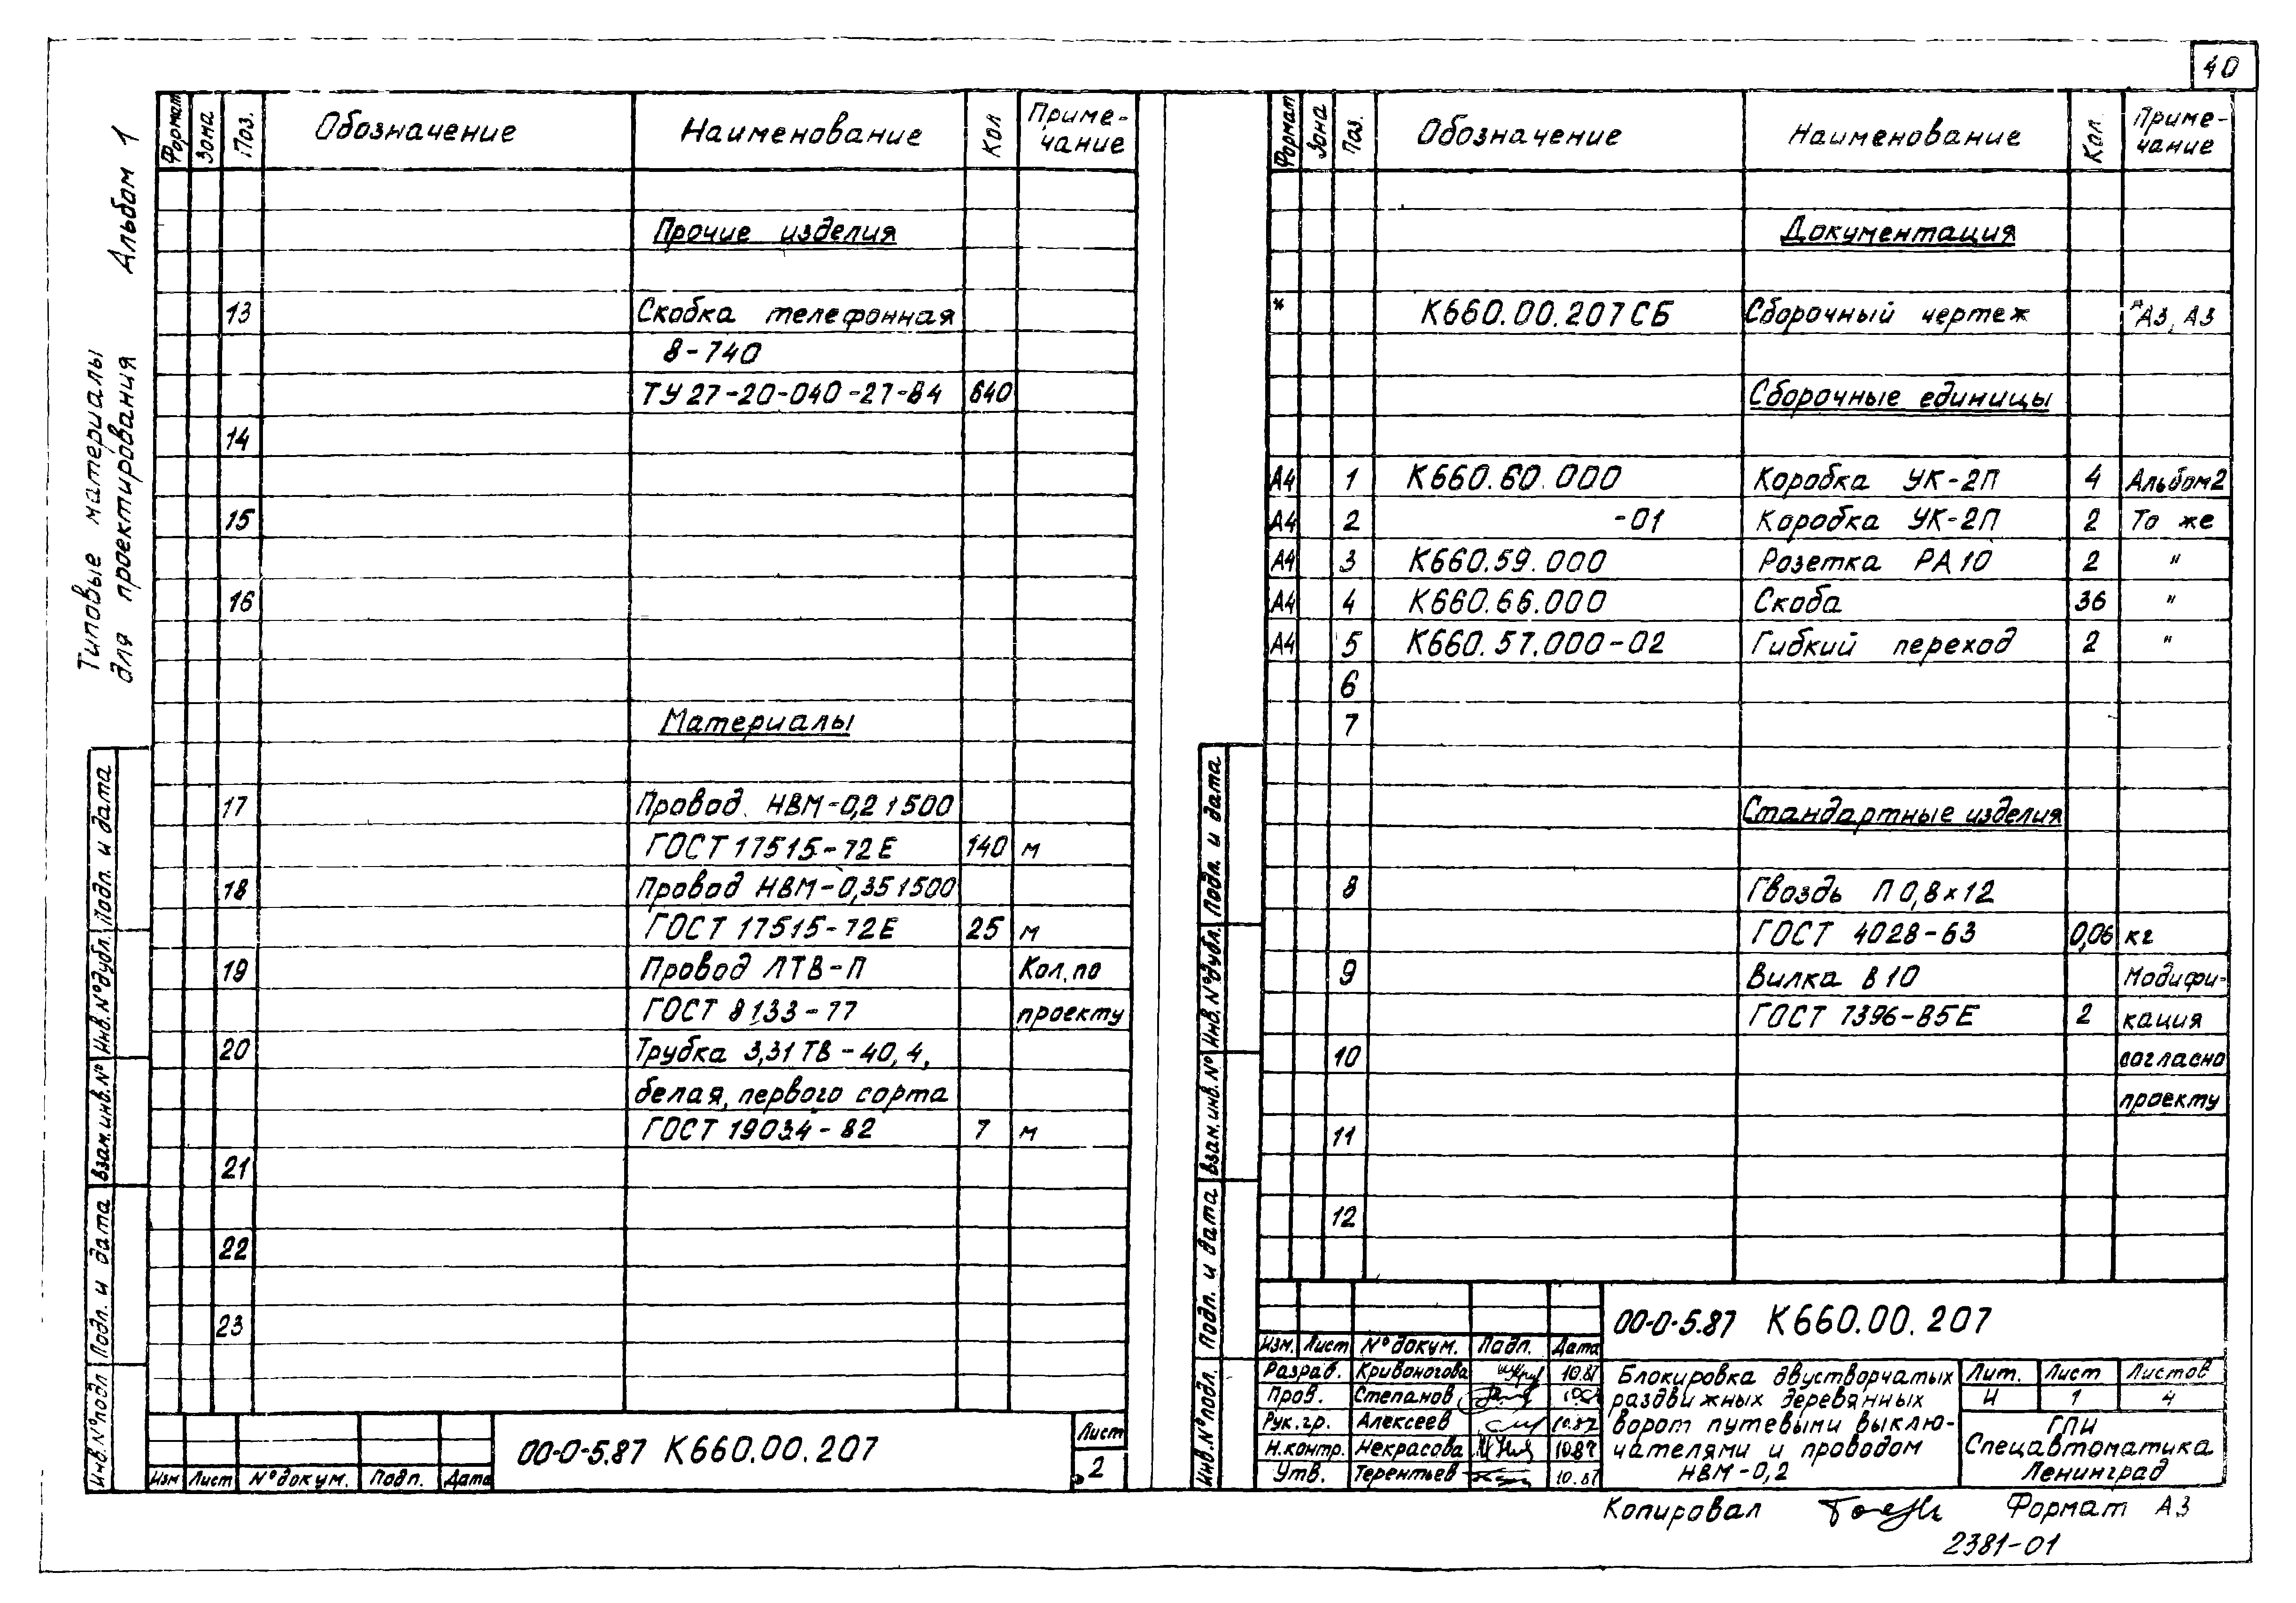 40
Типовые материалы для проектирования Альбом 1
Формат Зона Поз. Обозначение Наименование Кол Приме-чание
Прочие изделия
13 Скобка телефонная
8-740
ТУ 27-20-040-27-84 640
14
15
16
Материалы
17 Провод НВМ-0,2 1 500
ГОСТ 17515-72Е 140 м
18 Провод НВМ-0,35 1 500
ГОСТ 17515-72Е 25 м
19 Провод ЛТВ-П Кол. по
ГОСТ 8133-77 проекту
20 Трубка 3,31 ТВ-40, 4,
белая, первого сорта
ГОСТ 19034-82 7 м
21
22
23
Инв. № подл Подп. и дата Взам. инв. № Инв. № дубл. Подп. и дата
Изм Лист № докум. Подп. Дата
00-0-5.87 К660.00.207
Лист
2
Формат Зона Поз. Обозначение Наименование Кол. Приме-чание
Документация
* К660.00.207СБ Сборочный чертеж *А3, А3
Сборочные единицы
А4 1 К660.60.000 Коробка УК-2П 4 Альбом 2
А4 2 -01 Коробка УК-2П 2 То же
А4 3 К660.59.000 Розетка РА10 2 "
А4 4 К660.66.000 Скоба 36 "
А4 5 К660.57.000-02 Гибкий переход 2 "
6
7
Стандартные изделия
8 Гвоздь П 0,8×12
ГОСТ 4028-63 0,06 кг
9 Вилка В10 Модифи-
ГОСТ 7396-85Е 2 кация
10 согласно
проекту
11
12
Инв. № подл. Подп. и дата Взам. инв. № Инв. № дубл. Подп. и дата
00-0-5.87 К660.00.207
Изм. Лист № докум. Подп. Дата
Разраб. Кривоногова 10.87
Пров. Степанов
Рук. гр. Алексеев 10.87
Н. контр. Некрасова 10.87
Утв. Терентьев 10.87
Блокировка двустворчатых
раздвижных деревянных
ворот путевыми выклю-
чателями и проводом
НВМ-0,2
Лит. Лист Листов
И 1 4
ГПИ
Спецавтоматика
Ленинград
Копировал Формат А3
2381-01